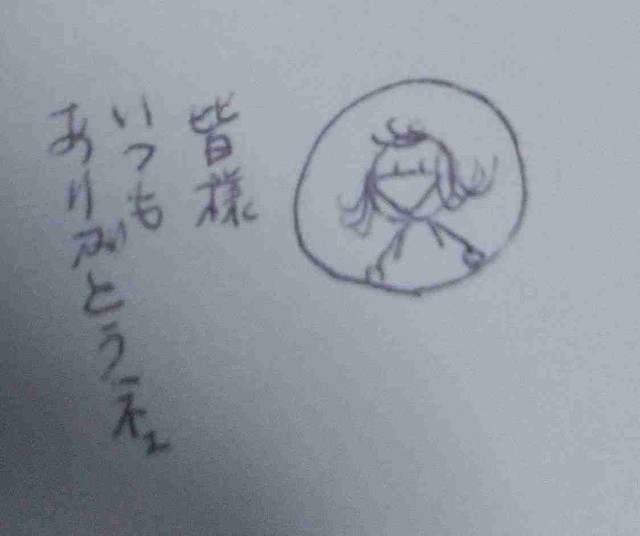 皆様
いつも
ありがとうネ